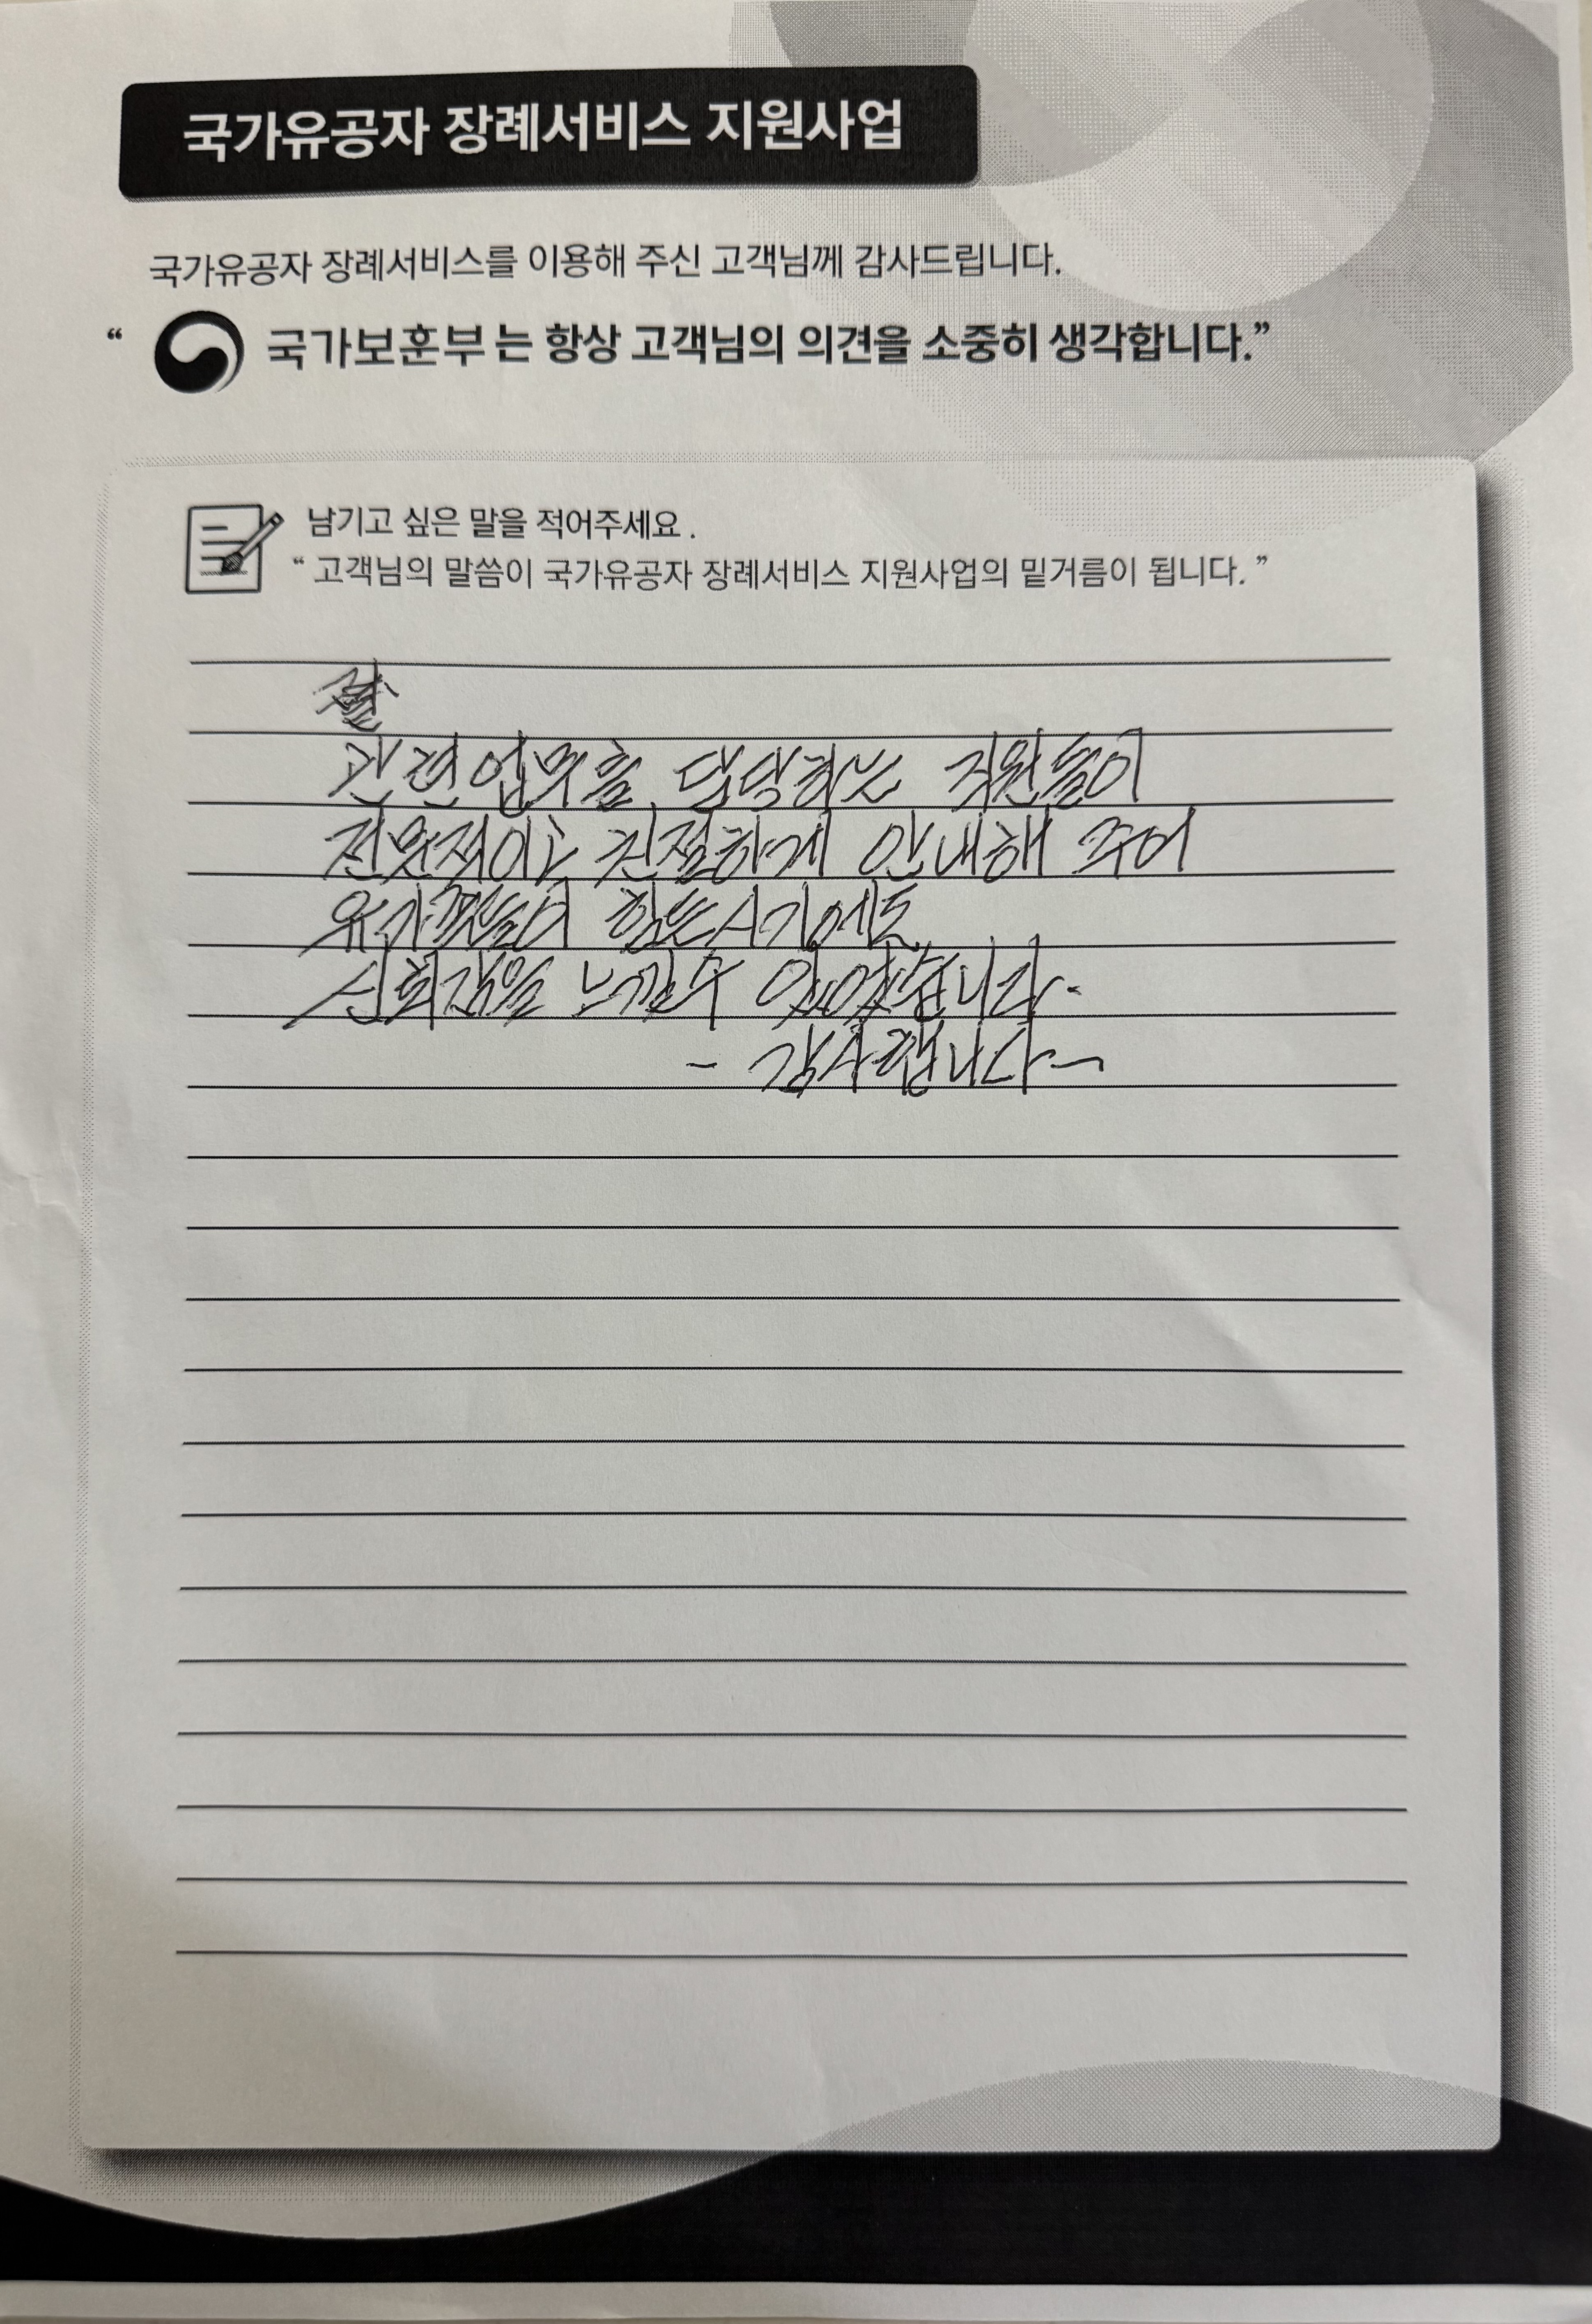 국가유공자 장례서비스 지원사업
국가유공자 장례서비스를 이용해 주신 고객님께 감사드립니다.
“ 국가보훈부 는 항상 고객님의 의견을 소중히 생각합니다.”
남기고 싶은 말을 적어주세요 .
“ 고객님의 말씀이 국가유공자 장례서비스 지원사업의 밑거름이 됩니다. ”
관련업무를 담당하는 직원들이
전문적이고 친절하게 안내해 주어
유가족들이 힘든시기에도
신뢰감을 느낄수 있었습니다.
- 감사합니다 -